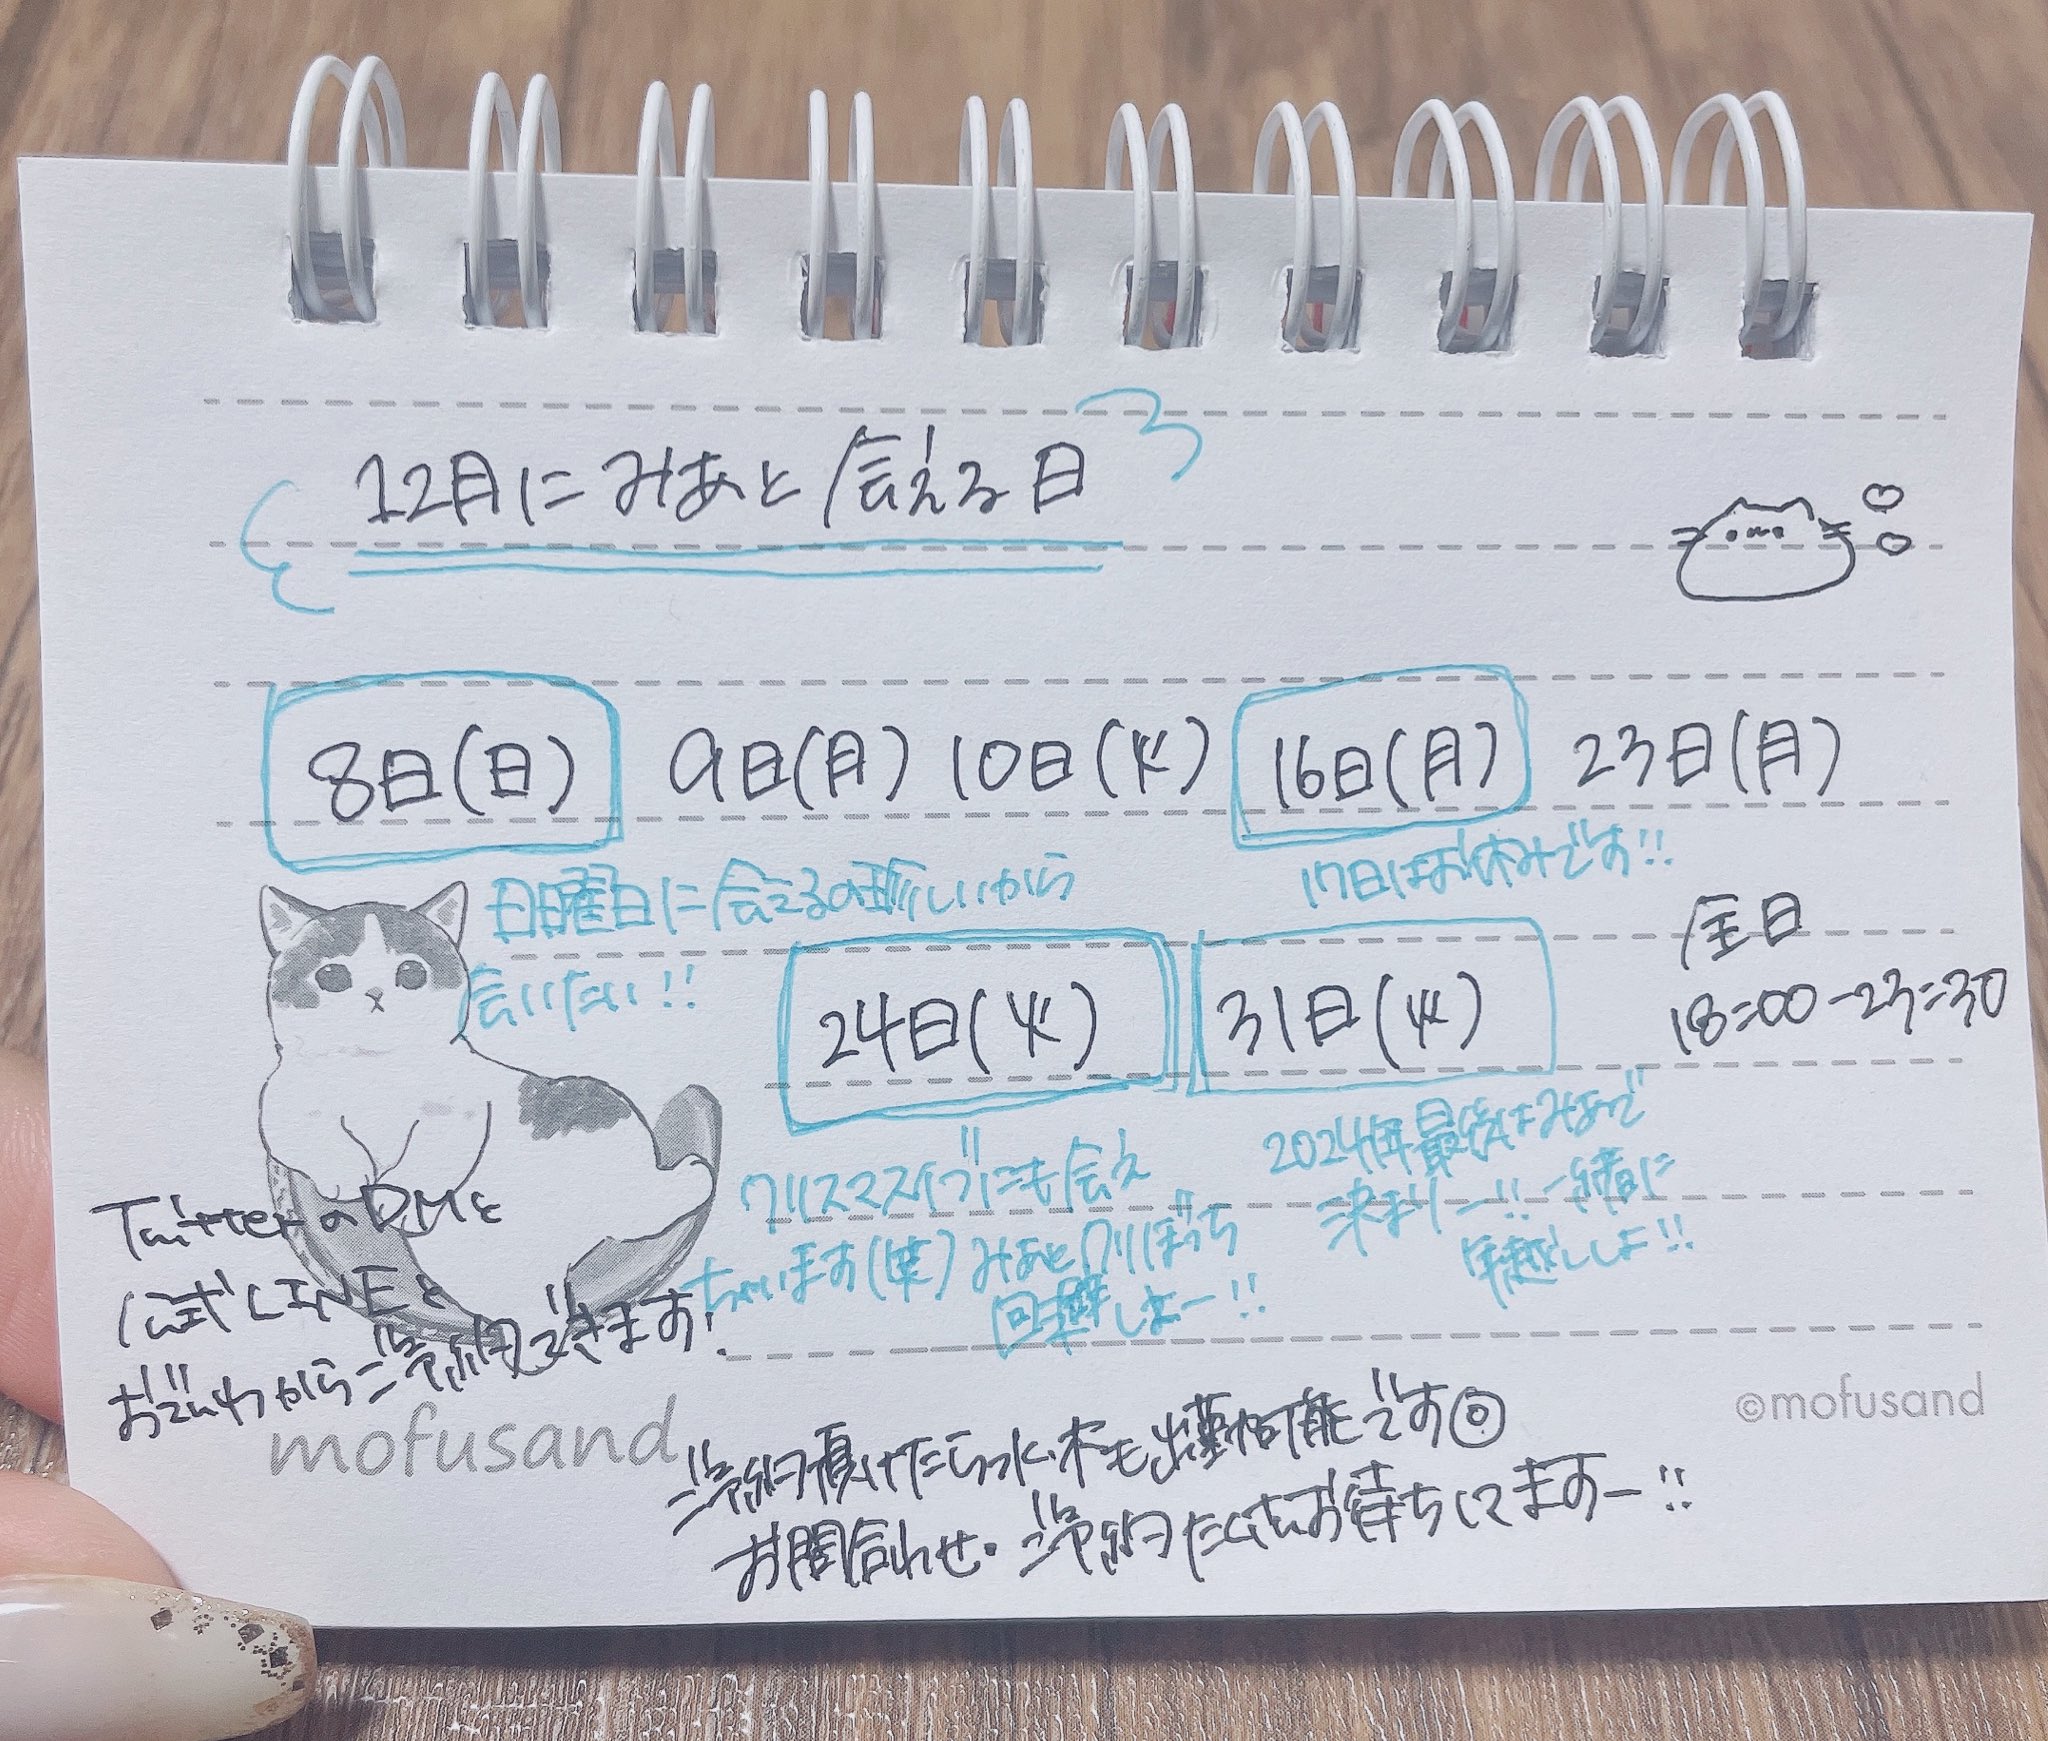 12月にみあと会える日
8日(日) 9日(月) 10日(火) 16日(月) 23日(月)
日曜日に会えるの珍しいから
会いたい!!
17日はお休みです!!
24日(火) 31日(火)
全日
18:00-23:30
クリスマスイブにも会え
ちゃいます(笑)みあとクリぼっち
回避しよー!!
2024年最後はみあで
決まりー!!一緒に
年越ししよ!!
TwitterのDMと
公式LINEと
お電わからご予約できます!
mofusand
©mofusand
ご予約頂けたら火、木も出勤可能です◎
お問合わせ・ご予約たくさんお待ちしてますー!!